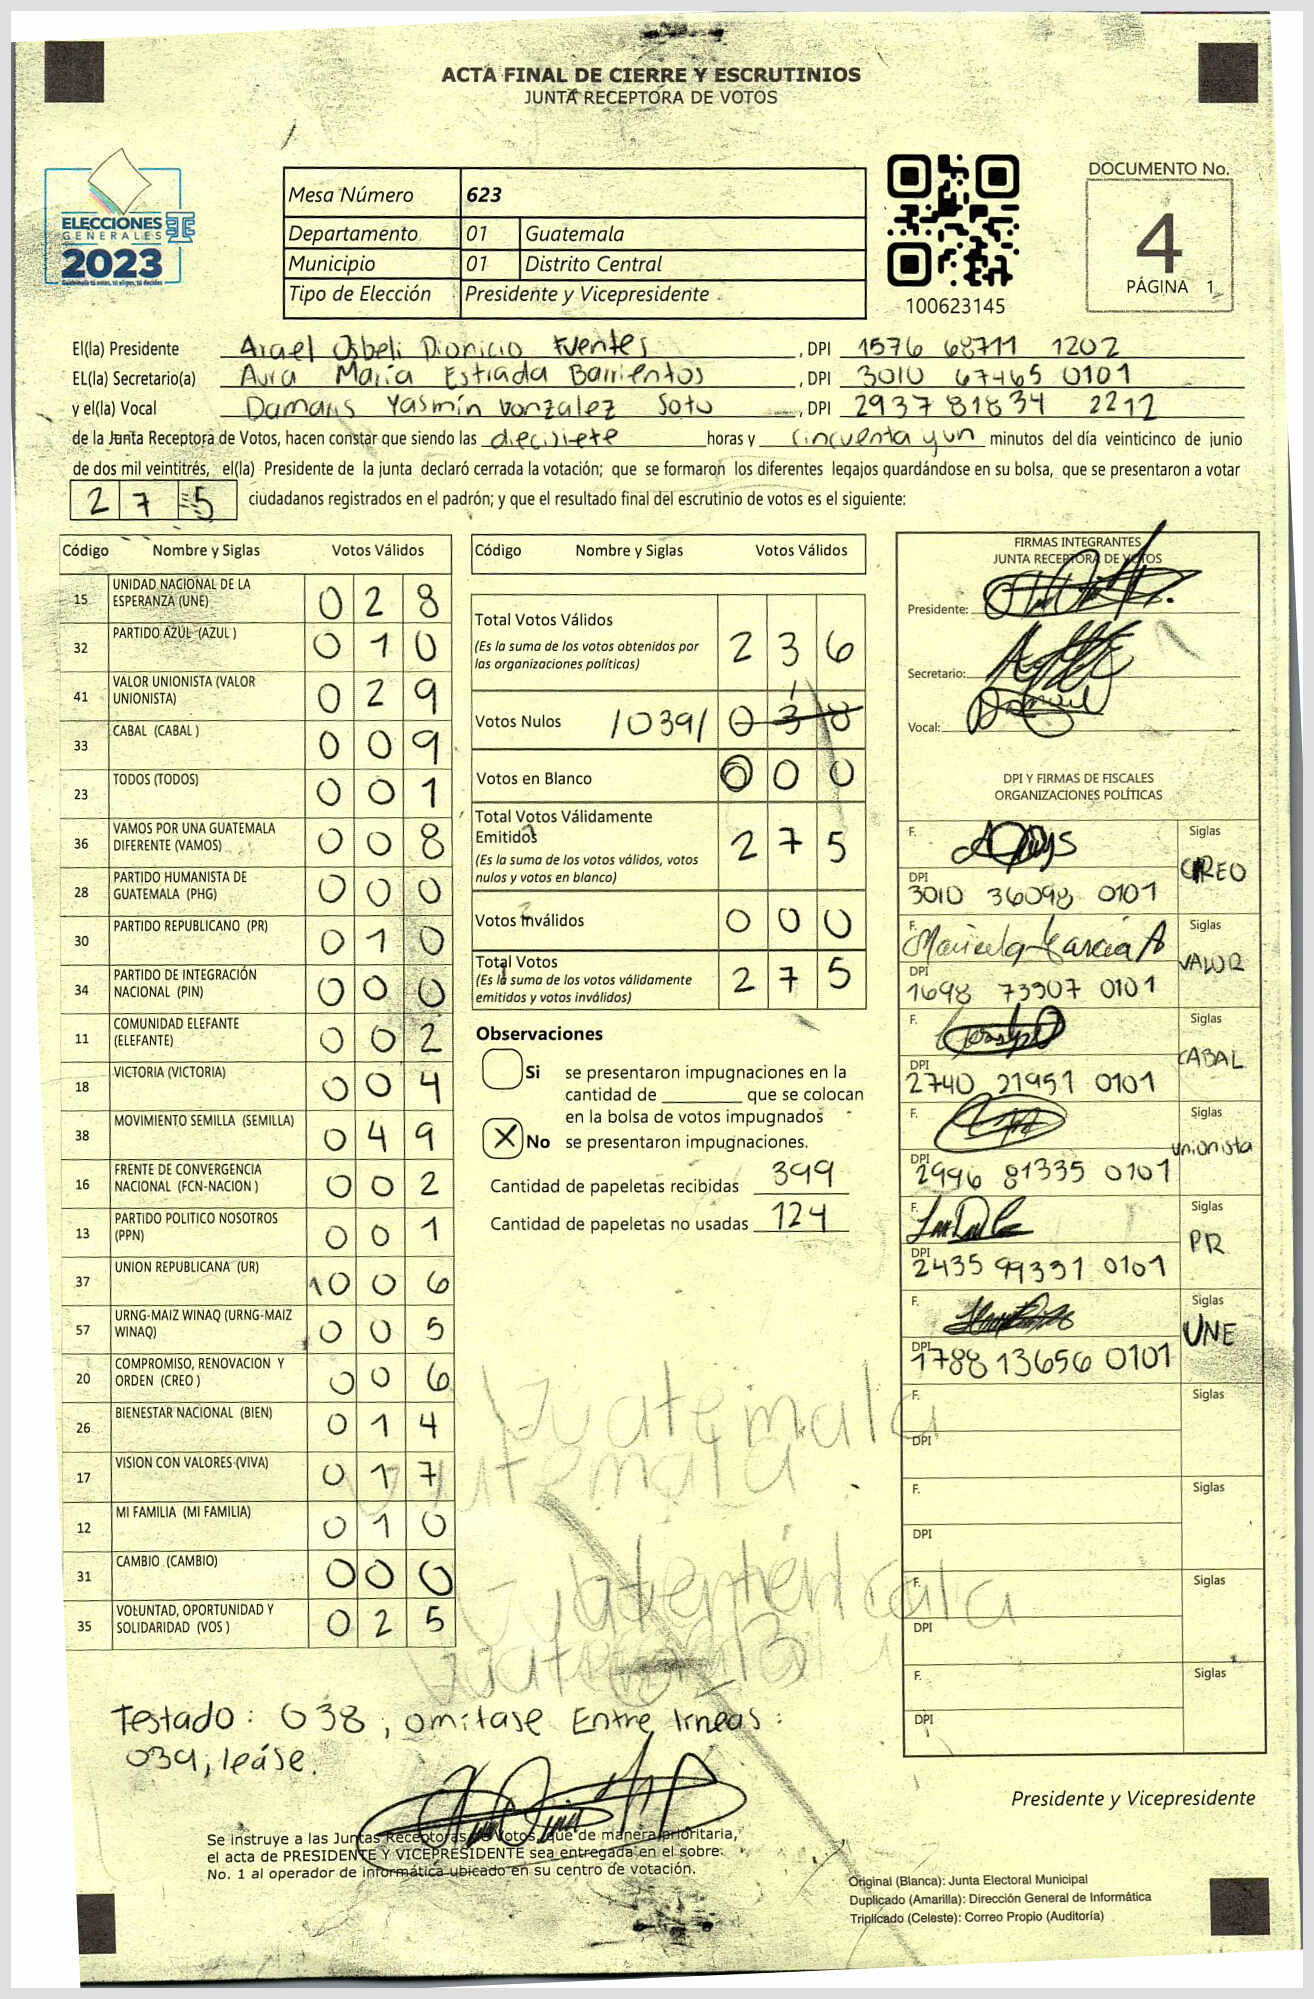 ACTA FINAL DE CIERRE Y ESCRUTINIOS
JUNTA RECEPTORA DE VOTOS
ELECCIONES
GENERALES
2023
Guatemala tú votas, tú eliges, tú decides
Mesa Número 623
Departamento 01 Guatemala
Municipio 01 Distrito Central
Tipo de Elección Presidente y Vicepresidente
100623145
DOCUMENTO No.
4
PÁGINA 1
El(la) Presidente Azael Osbeli Dionicio Fuentes, DPI 1576 68711 1202
EL(la) Secretario(a) Aura María Estrada Barrientos, DPI 3010 67465 0101
y el(la) Vocal Damaris Yasmín Gonzalez Soto, DPI 2937 81834 2212
de la Junta Receptora de Votos, hacen constar que siendo las diecisiete horas y cincuenta y un minutos del día veinticinco de junio
de dos mil veintitrés, el(la) Presidente de la junta declaró cerrada la votación; que se formaron los diferentes legajos guardándose en su bolsa, que se presentaron a votar
275 ciudadanos registrados en el padrón; y que el resultado final del escrutinio de votos es el siguiente:
Código Nombre y Siglas Votos Válidos
15 UNIDAD NACIONAL DE LA ESPERANZA (UNE) 028
32 PARTIDO AZUL (AZUL ) 010
41 VALOR UNIONISTA (VALOR UNIONISTA) 029
33 CABAL (CABAL ) 009
23 TODOS (TODOS) 001
36 VAMOS POR UNA GUATEMALA DIFERENTE (VAMOS) 008
28 PARTIDO HUMANISTA DE GUATEMALA (PHG) 000
30 PARTIDO REPUBLICANO (PR) 010
34 PARTIDO DE INTEGRACIÓN NACIONAL (PIN) 000
11 COMUNIDAD ELEFANTE (ELEFANTE) 002
18 VICTORIA (VICTORIA) 004
38 MOVIMIENTO SEMILLA (SEMILLA) 049
16 FRENTE DE CONVERGENCIA NACIONAL (FCN-NACION ) 002
13 PARTIDO POLITICO NOSOTROS (PPN) 001
37 UNION REPUBLICANA (UR) 1006
57 URNG-MAIZ WINAQ (URNG-MAIZ WINAQ) 005
20 COMPROMISO, RENOVACION Y ORDEN (CREO ) 006
26 BIENESTAR NACIONAL (BIEN) 014
17 VISION CON VALORES (VIVA) 017
12 MI FAMILIA (MI FAMILIA) 010
31 CAMBIO (CAMBIO) 000
35 VOLUNTAD, OPORTUNIDAD Y SOLIDARIDAD (VOS ) 025
Código Nombre y Siglas Votos Válidos
Total Votos Válidos 236
(Es la suma de los votos obtenidos por
las organizaciones políticas)
Votos Nulos /039/ 038
Votos en Blanco 000
Total Votos Válidamente
Emitidos 275
(Es la suma de los votos válidos, votos
nulos y votos en blanco)
Votos Inválidos 000
Total Votos 275
(Es la suma de los votos válidamente
emitidos y votos inválidos)
Observaciones
Si se presentaron impugnaciones en la
cantidad de ________ que se colocan
en la bolsa de votos impugnados
X No se presentaron impugnaciones.
Cantidad de papeletas recibidas 399
Cantidad de papeletas no usadas 124
FIRMAS INTEGRANTES
JUNTA RECEPTORA DE VOTOS
Presidente:
Secretario:
Vocal:
DPI Y FIRMAS DE FISCALES
ORGANIZACIONES POLÍTICAS
F. Siglas CREO
DPI 3010 36098 0101
F. Maricela García A Siglas VALOR
DPI 1698 73907 0101
F. Siglas CABAL
DPI 2740 21951 0101
F. Siglas unionista
DPI 2996 81335 0101
F. Siglas PR
DPI 2435 99331 0101
F. Siglas UNE
DPI 1788 13656 0101
F. Siglas
DPI
F. Siglas
DPI
F. Siglas
DPI
F. Siglas
DPI
Guatemala
Guatemala
Testado: 038, omítase Entre líneas:
039, leáse.
Presidente y Vicepresidente
Se instruye a las Juntas Receptoras de Votos, que de manera prioritaria,
el acta de PRESIDENTE Y VICEPRESIDENTE sea entregada en el sobre
No. 1 al operador de informática ubicado en su centro de votación.
Original (Blanca): Junta Electoral Municipal
Duplicado (Amarilla): Dirección General de Informática
Triplicado (Celeste): Correo Propio (Auditoría)